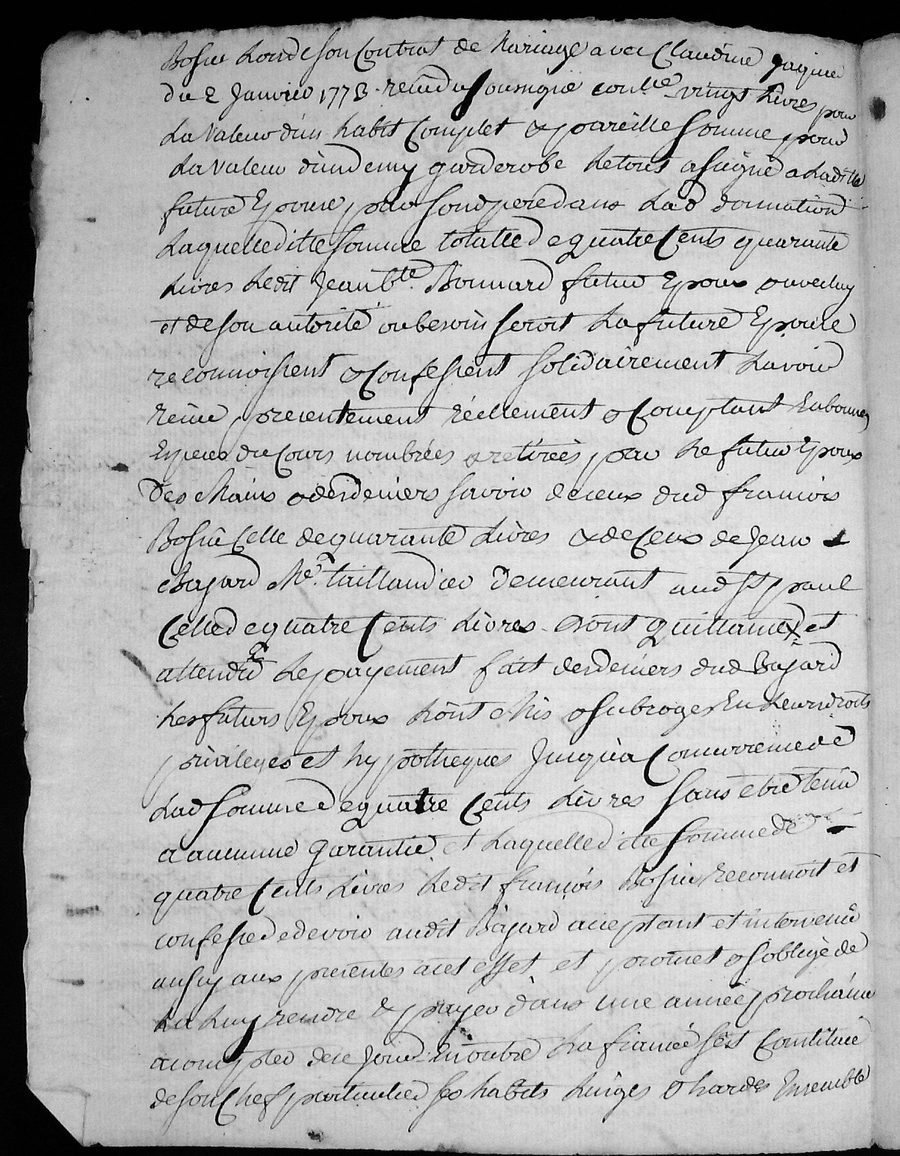 Bosiu Lors de son Contrat de Mariage avec Claudine Jaquier
du 2 Janvier 1773 reçu du soussigné conte. vingt Livres pour
La valeur d'un habit Complet & pareille somme pour
La valeur d'un demy garderobe Le tout assigné a Ladite
future Epouse par sond pere dans Lad donnation
Laquelle ditte somme totalle de quatre Cents quarante
Livres Ledit Jean Bte. Bonnard futur Epoux & avec luy
et de son autorité ou besoin seroit La future Epouse
reconnoissent & Confessent solidairement Lavoir
reçue presentement réellement & Comptant En bonnes
Especes du Cours nombrées & retirées par Le futur Epoux
Des Mains & des deniers savoir de ceux dud françois
Bosiu Celle de quarante Livres & de Ceux de Jean
Bajard Me. taillandier demeurant aud St paul
Celle de quatre Cents Livres dont quittance et
attendu Le payement fait des deniers dud Bajard
Les futurs Epoux L'ont Mis & subrogé En Leurs droits
privileges et hypotheques Jusqu'a Concurrence de
Lad somme de quatre Cents Livres sans etre tenu
a aucunne garantie et Laquelle ditte somme de
quatre Cents Livres Ledit françois Bosiu Reconnoit et
confesse de devoir audit Bajard acceptant et intervenu
aussy aux presentes a cet effet et promet & s'oblige de
La luy rendre & payer dans une année prochaine
a compter de ce Jour. En outre La fiancée s'est Constituée
de son Chef particulier ses habits Linges & hardes Ensemble